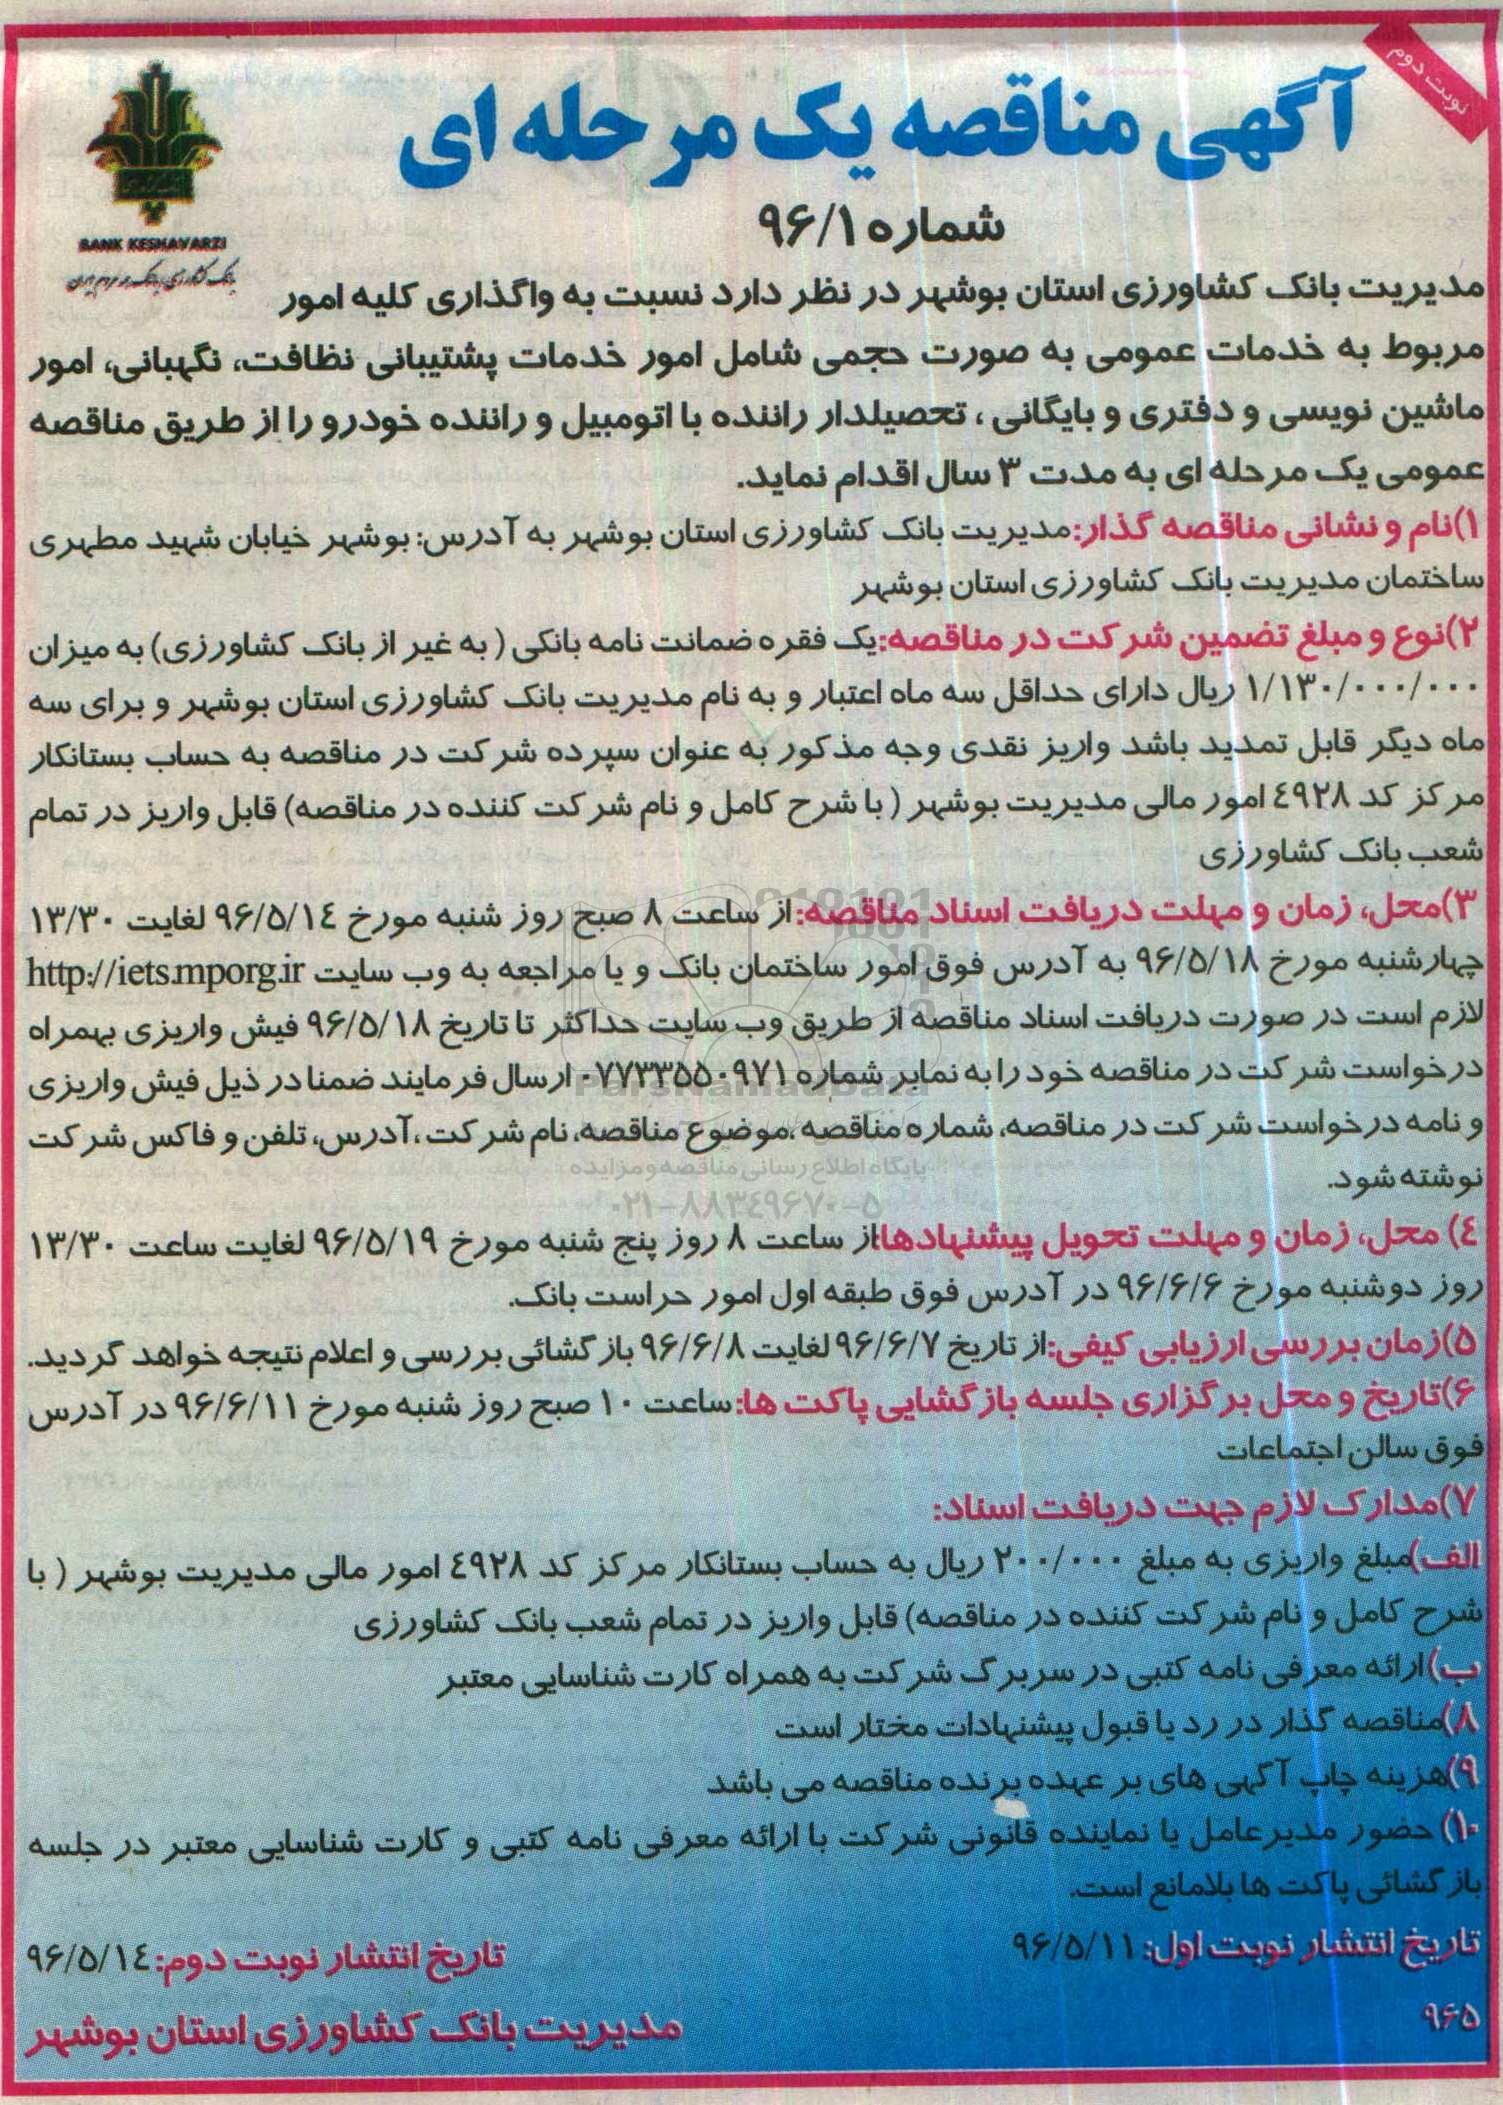 نوبت دوم
آگهی مناقصه یک مرحله ای
شماره ۹۶/۱
BANK KESHAVARZI
مدیریت بانک کشاورزی استان بوشهر در نظر دارد نسبت به واگذاری کلیه امور
مربوط به خدمات عمومی به صورت حجمی شامل امور خدمات پشتیبانی نظافت، نگهبانی، امور
ماشین نویسی و دفتری و بایگانی ، تحصیلدار راننده با اتومبیل و راننده خودرو را از طریق مناقصه
عمومی یک مرحله ای به مدت ۳ سال اقدام نماید.
۱)نام و نشانی مناقصه گذار:مدیریت بانک کشاورزی استان بوشهر به آدرس: بوشهر خیابان شهید مطهری
ساختمان مدیریت بانک کشاورزی استان بوشهر
۲)نوع و مبلغ تضمین شرکت در مناقصه:یک فقره ضمانت نامه بانکی ( به غیر از بانک کشاورزی) به میزان
۱/۱۳۰/۰۰۰/۰۰۰ ریال دارای حداقل سه ماه اعتبار و به نام مدیریت بانک کشاورزی استان بوشهر و برای سه
ماه دیگر قابل تمدید باشد واریز نقدی وجه مذکور به عنوان سپرده شرکت در مناقصه به حساب بستانکار
مرکز کد ٤۹۲۸ امور مالی مدیریت بوشهر ( با شرح کامل و نام شرکت کننده در مناقصه) قابل واریز در تمام
شعب بانک کشاورزی
۳)محل، زمان و مهلت دریافت اسناد مناقصه:از ساعت ۸ صبح روز شنبه مورخ ۹۶/۵/۱٤ لغایت ۱۳/۳۰
چهارشنبه مورخ ۹۶/۵/۱۸ به آدرس فوق امور ساختمان بانک و یا مراجعه به وب سایت http://iets.mporg.ir
لازم است در صورت دریافت اسناد مناقصه از طریق وب سایت حداکثر تا تاریخ ۹۶/۵/۱۸ فیش واریزی بهمراه
درخواست شرکت در مناقصه خود را به نمابر شماره ۰۷۷۳۳۵۵۰۹۷۱ ارسال فرمایند ضمنا در ذیل فیش واریزی
و نامه درخواست شرکت در مناقصه، شماره مناقصه ،موضوع مناقصه، نام شرکت ،آدرس، تلفن و فاکس شرکت
نوشته شود.
ParsNamadData
پایگاه اطلاع رسانی مناقصه و مزایده
۰۲۱-۸۸۳٤۹۶۷۰-۵
٤) محل، زمان و مهلت تحویل پیشنهادها:از ساعت ۸ روز پنج شنبه مورخ ۹۶/۵/۱۹ لغایت ساعت ۱۳/۳۰
روز دوشنبه مورخ ۹۶/۶/۶ در آدرس فوق طبقه اول امور حراست بانک.
۵)زمان بررسی ارزیابی کیفی:از تاریخ ۹۶/۶/۷ لغایت ۹۶/۶/۸ بازگشائی بررسی و اعلام نتیجه خواهد گردید.
۶)تاریخ و محل برگزاری جلسه بازگشایی پاکت ها:ساعت ۱۰ صبح روز شنبه مورخ ۹۶/۶/۱۱ در آدرس
فوق سالن اجتماعات
۷)مدارک لازم جهت دریافت اسناد:
الف)مبلغ واریزی به مبلغ ۲۰۰/۰۰۰ ریال به حساب بستانکار مرکز کد ٤۹۲۸ امور مالی مدیریت بوشهر ( با
شرح کامل و نام شرکت کننده در مناقصه) قابل واریز در تمام شعب بانک کشاورزی
ب)ارائه معرفی نامه کتبی در سربرگ شرکت به همراه کارت شناسایی معتبر
۸)مناقصه گذار در رد یا قبول پیشنهادات مختار است
۹)هزینه چاپ آگهی های بر عهده برنده مناقصه می باشد
۱۰) حضور مدیرعامل یا نماینده قانونی شرکت با ارائه معرفی نامه کتبی و کارت شناسایی معتبر در جلسه
بازگشائی پاکت ها بلامانع است.
تاریخ انتشار نوبت اول: ۹۶/۵/۱۱
تاریخ انتشار نوبت دوم: ۹۶/۵/۱٤
۹۶۵
مدیریت بانک کشاورزی استان بوشهر